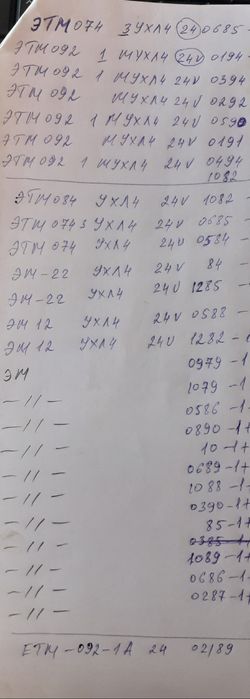 ЭТМ 074 3 УХЛ4 24 0685 -
ЭТМ 092 1 МУХЛ4 24V 0194 -
ЭТМ 092 1 МУХЛ4 24V 0394
ЭТМ 092 МУХЛ4 24V 0292
ЭТМ 092 1 МУХЛ4 24V 0590
ЭТМ 092 МУХЛ4 24V 0191
ЭТМ 092 1 МУХЛ4 24V 0494
1082
ЭТМ 084 УХЛ4 24V 1082 -
ЭТМ 074 3 УХЛ4 24V 0685 -
ЭТМ 074 УХЛ4 24V 0584 -
ЭМ-22 УХЛ4 24V 84 -
ЭМ-22 УХЛ4 24V 1285 -
ЭМ 12 УХЛ4 24V 0588 -
ЭМ 12 УХЛ4 24V 1282 -1
ЭМ 0979 -1
-//- 1079 -1
-//- 0586 -1
-//- 0890 -1+
-//- 10 -1+
-//- 0689 -1+
-//- 1088 -1+
-//- 0390 -1+
-//- 85 -1+
0385 -1+
-//- 1089 -1+
-//- 0686 -1
-//- 0287 -1+
ЕТМ-092-1А 24 02/89